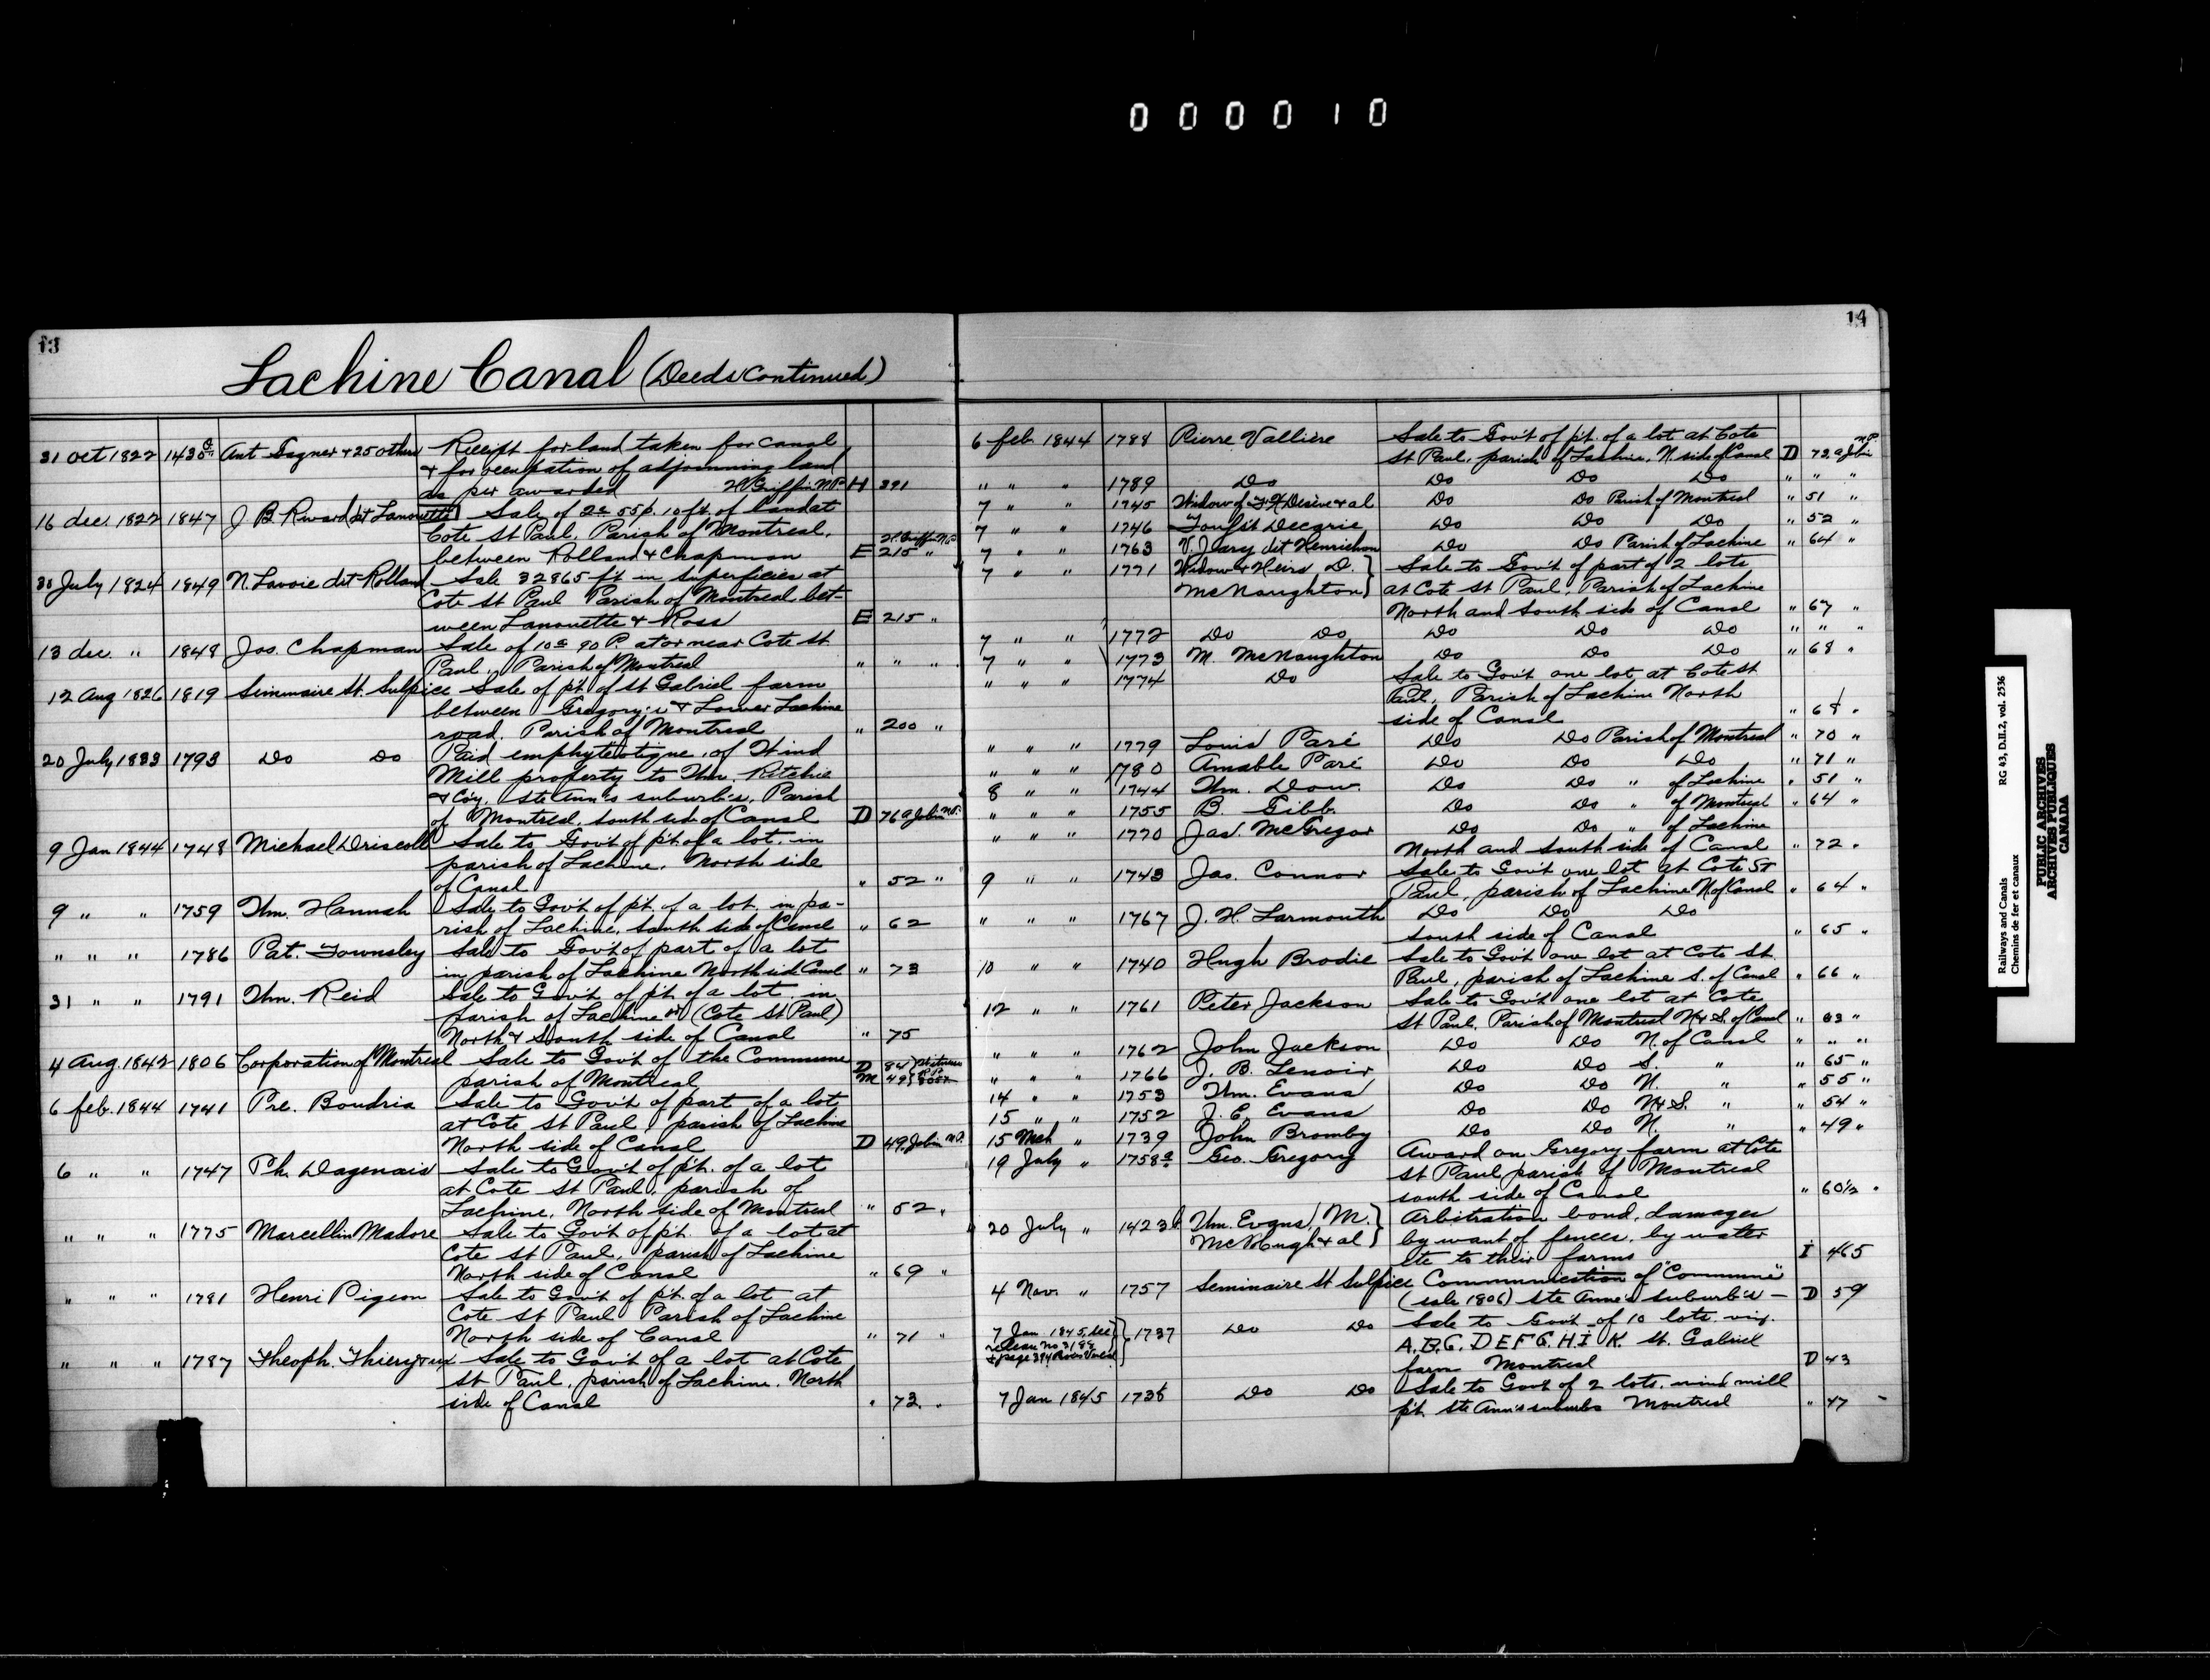 000010
13
Lachine Canal (Deeds continued)
31 Oct 1822 1430 Ant Gagner + 25 others Receipt for land taken for Canal
+ for occupation of adjoinning land
as per awarded H Griffin N.P. H 391
16 dec. 1822 1847 J. B. Rivard dit Lanouette Sale of 2a 55p. 10 ft. of land at
Cote St Paul, Parish of Montreal,
between Rolland & Chapman E 215 "
H. Griffin N.P.
30 July 1824 1849 N. Lavoie dit Rolland Sale 32865 ft in superficies at
Cote St Paul Parish of Montreal bet-
ween Lanouette & Ross E 215 "
13 dec. " 1848 Jos. Chapman Sale of 10a 90 P. at or near Cote St
Paul, Parish of Montreal " " "
12 Aug 1826 1819 Seminaire St. Sulpice Sale of pt. of St Gabriel farm
between Gregory's & Lower Lachine
road, Parish of Montreal " 200 "
20 July 1833 1793 Do Do Paid emphyteotique, of Wind
Mill property to Wm. Ritchie
& Coy. Ste Ann's suburbs, Parish
of Montreal, south side of Canal D 76a Jobin N.P.
9 Jan 1844 1748 Michael Driscoll Sale to Gov't of pt. of a lot, in
parish of Lachine, North side
of Canal " 52 "
9 " " 1759 Wm. Hannah Sale to Gov't of pt. of a lot in pa-
rish of Lachine, South side of Canal " 62
" " " 1786 Pat. Townsley Sale to Gov't of part of a lot
in parish of Lachine North sid Canal " 73
31 " " 1791 Wm. Reid Sale to Gov't of pt. of a lot in
parish of Lachine or (Cote St Paul)
North & South side of Canal " 75
4 Aug. 1842 1806 Corporation of Montreal Sale to Gov't of the Commune
parish of Montreal D 84
M 49
6 feb. 1844 1741 Pre. Boudria Sale to Gov't of part of a lot
at Cote St Paul, parish of Lachine
North side of Canal D 49 Jobin N.P.
6 " " 1747 Ph. Dagenais Sale to Gov't of pt. of a lot
at Cote St Paul, parish of
Lachine, North side of Montreal " 52 "
" " " 1775 Marcellin Madore Sale to Gov't of pt. of a lot at
Cote St Paul, parish of Lachine
North side of Canal " 69 "
" " " 1781 Henri Pigeon Sale to Gov't of pt. of a lot at
Cote St Paul Parish of Lachine
North side of Canal " 71 "
" " " 1787 Theoph. Thierry & ux Sale to Gov't of a lot at Cote
St Paul, parish of Lachine, North
side of Canal " 73 "
14
6 feb. 1844 1788 Pierre Vallière Sale to Gov't of pt. of a lot at Cote
St Paul, parish of Lachine, N. side of Canal D 72a Jobin N.P.
" " " 1789 Do Do Do Do " " "
7 " " 1745 Widow of F X Desève & al Do Do Parish of Montreal " 51 "
7 " " 1746 Decarie Do Do Do " 52 "
7 " " 1763 V. Jeary dit Henrichon Do Do Parish of Lachine " 64 "
7 " " 1771 Widow & Heirs D. Sale to Gov't of part of 2 lots
McNaughton at Cote St Paul, Parish of Lachine
North and South side of Canal " 67 "
7 " " 1772 Do Do Do Do Do " " "
7 " " 1773 M. McNaughton Do Do Do " 68 "
" " " 1774 Do Sale to Gov't one lot, at Cote St
Paul, Parish of Lachine North
side of Canal " 68 "
" " " 1779 Louis Paré Do Do Parish of Montreal " 70 "
" " " 1780 Amable Paré Do Do Do " 71 "
8 " " 1744 Wm. Dow Do Do " of Lachine " 51 "
" " " 1755 B. Gibb. Do Do " of Montreal " 64 "
" " " 1770 Jas. McGregor Do Do " of Lachine
North and South side of Canal " 72 "
9 " " 1743 Jas. Connor Sale to Gov't one lot at Cote St
Paul, parish of Lachine N. of Canal " 64 "
" " " 1767 J. H. Larmouth Do Do Do
South side of Canal " 65 "
10 " " 1740 Hugh Brodie Sale to Gov't one lot at Cote St.
Paul, parish of Lachine S. of Canal " 66 "
12 " " 1761 Peter Jackson Sale to Gov't one lot at Cote
St Paul, Parish of Montreal N & S. of Canal " 63 "
" " " 1762 John Jackson Do Do N. of Canal " " "
" " " 1766 J. B. Lenoir Do Do S. " " 65 "
14 " " 1753 Wm. Evans Do Do N. " " 55 "
15 " " 1752 J. E. Evans Do Do N & S. " " 54 "
15 Mch " 1739 John Bromby Do Do N. " " 49 "
19 July " 1758a Geo. Gregory Award on Gregory farm at Cote
St Paul parish of Montreal
south side of Canal " 60½ "
20 July " 1423 Wm. Evans, M. Arbitration bond, damages
& al by want of fences, by water
ete to their farms I 465
4 Nov. " 1757 Seminaire St Sulpice Communication of "Commune"
(sale 1806) Ste Anne's suburbs - D 59
7 Jan 1845, see 1737 Do Do Sale to Gov't of 10 lots viz.
release no 3189 A. B. C. D E F G. H. I K. St. Gabriel
farm Montreal D 43
7 Jan 1845 1738 Do Do Sale to Gov't of 2 lots, wind mill
pt. Ste Ann's suburbs Montreal " 47
Railways and Canals RG 43, D.II.2, vol. 2536
Chemins de fer et canaux
PUBLIC ARCHIVES
ARCHIVES PUBLIQUES
CANADA